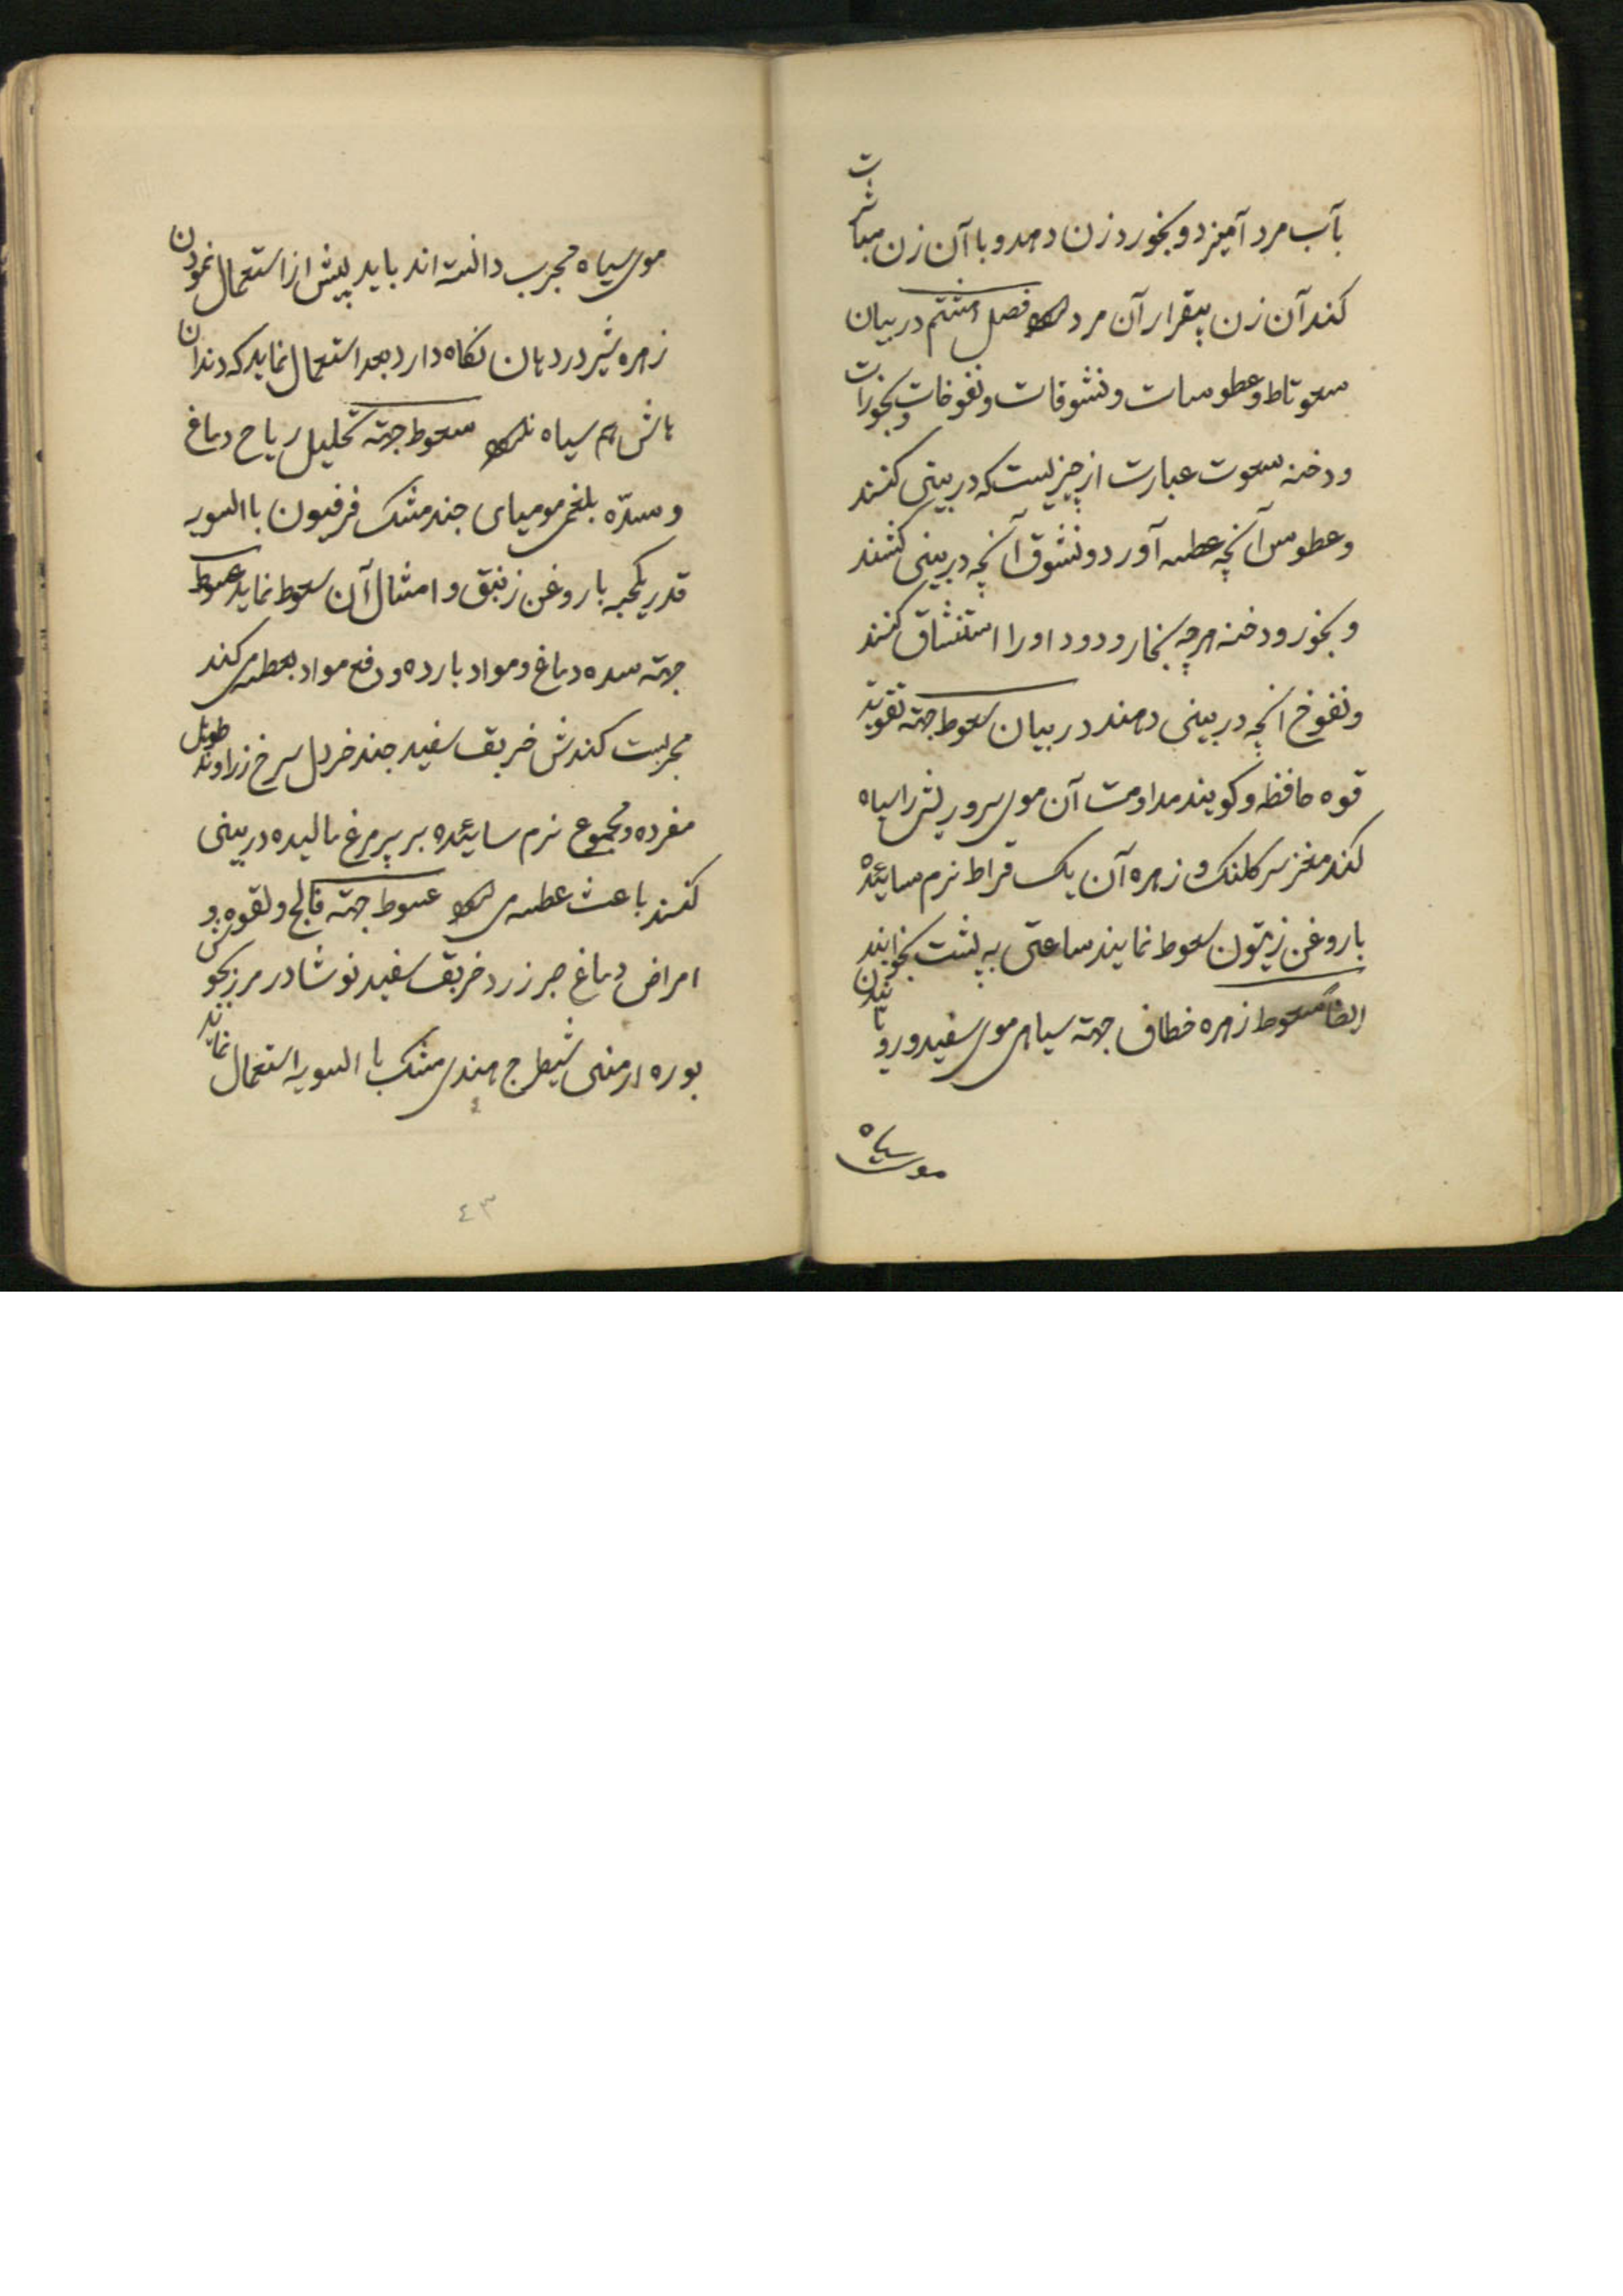 بآب مرد آمیزد و بخورد زن دهد و با آن زن مباشرت
کند آن زن بیقرار آن مرد شود فصل هشتم در بیان
سعوتاط و عطوسات و نشوقات و نفوخات و بخورات
و دخنه سعوت عبارت از چیزیست که در بینی کنند
و عطوس آنچه عطسه آورد و نشوق آنچه در بینی کشند
و بخور و دخنه هرچه بخار و دود او را استنشاق کنند
و نفوخ انچه در بینی دمند در بیان سعوط جهته تقویته
قوه حافظه و کویند مداومت آن موی سر و ریش را سیاه
کند مغز سر کلنک و زهره آن یک قراط نرم سائیده
با روغن زیتون سعوط نمایند ساعتی به پشت بخوابند
ایضاً سعوط زهره خطاف جهته سیاهی موی سفید و رویانیدن
موی سیاه
موی سیاه مجرب دانسته اند باید پیش از استعمال نمودن
زهره شیر در دهان نکاه دارد بعد استعمال نماید که دندان
هاش هم سیاه نشود سعوط جهته تحلیل ریاح دماغ
و سدّه بلغمی مومیای جند مشک فرفیون باالسویه
قدر یکحبه با روغن زنبق و امثال آن سعوط نماید عسوط
جهته سده دماغ و مواد بارده و دفع مواد بعطسه می کند
مجربست کندش خربق سفید جند خردل سرخ زراوند طویل
مفرده و مجموع نرم سائیده بر پر مرغ مالیده در بینی
کنند باعث عطسه می شود عسوط جهته فالج و لقوه و
امراض دماغ صبر زرد خربق سفید نوشادر مرزنجوش
بوره ارمنی شیطرج هندی مشک باالسویه استعمال نمایند
٤٣